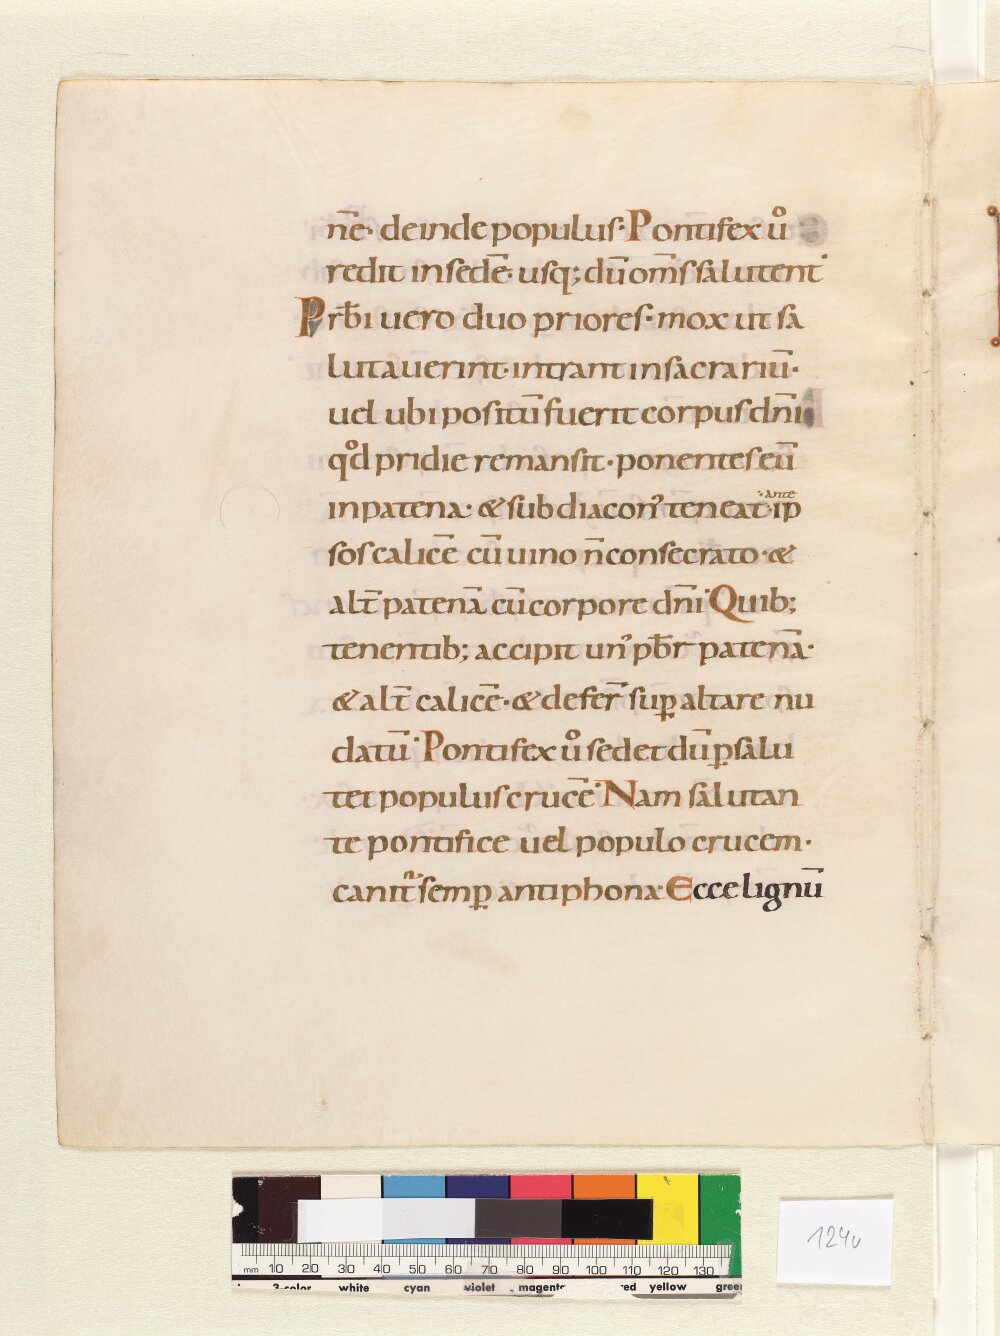 nē· deinde populus· Pontifex uͦ
redit in sedē· usq; dū om̄s salutent·
Prb̄i uero duo priores· mox ut sa
lutauerint· intrant in sacrariū·
uel ubi positū fuerit corpus dn̄i
qͦd pridie remansit· ponentes eū
in patena· & subdiacon᾽ teneat· ante ip
sos calicē cū uino n̄ consecrato· &
alt̄ patenā cū corpore dn̄i· Quib;
tenentib; accipit un᾽ pb̄r patenā·
& alt̄ calicē· & defer̄ sup altare nu
datū· Pontifex uͦ sedet dū p salu
tet populus crucē· Nam salutan
te pontifice uel populo crucem·
canit᷑ semp antiphona· Ecce lignū
124v
mm 10 20 30 40 50 60 70 80 90 100 110 120 130
3-color white cyan violet magenta red yellow green